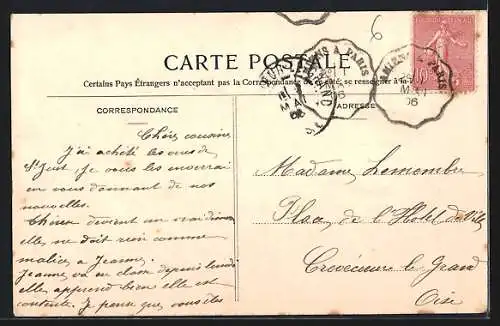 6
CARTE POSTALE
Certains Pays Étrangers n'acceptent pas la Correspondance se renseigner à la
CORRESPONDANCE
ADRESSE
AMIENS A PARIS
MAI
06
AMIENS A PARIS
MAI
06
Chère cousine
J'ai acheté les vues de
St Just je vous les enverrai
en vous donnant de nos
nouvelles.
devient un vrai
elle ne doit rien comme
malice à Jeanne.
Jeanne va en classe depuis lundi
elle apprend bien elle est
contente. Je pense que vous êtes
Madame Lemembre
Place de l'Hotel de Ville
Crevecœur le Grand
Oise